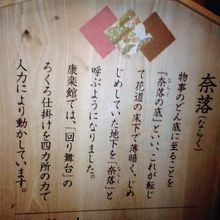 奈落（ならく）
物事のどん底に至ることを
『奈落の底』といい、これが転じ
て花道の床下で薄暗く、じめ
じめしていた地下を「奈落」と
呼ぶようになりました。
康楽館では、「回り舞台」の
ろくろ仕掛けを四カ所の力で
人力により動かしています。